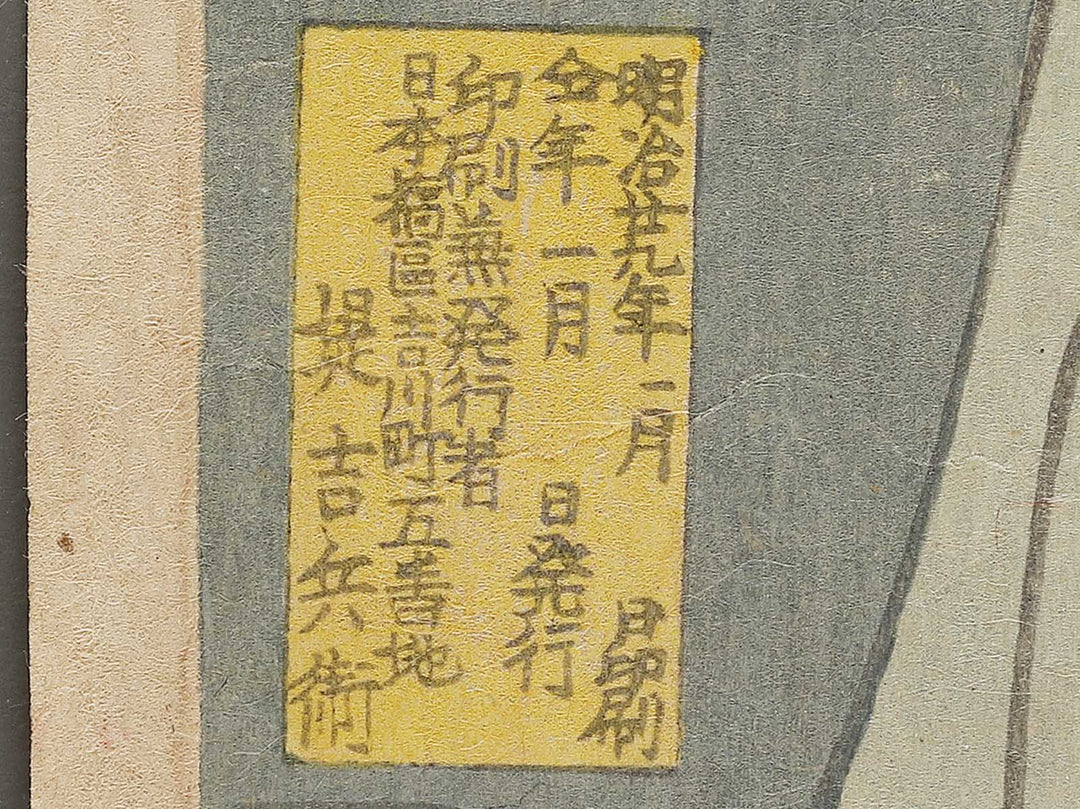 明治廿九年一月 日印刷
仝年一月 日発行
印刷兼発行者
日本橋区吉川町五番地
堤吉兵衛